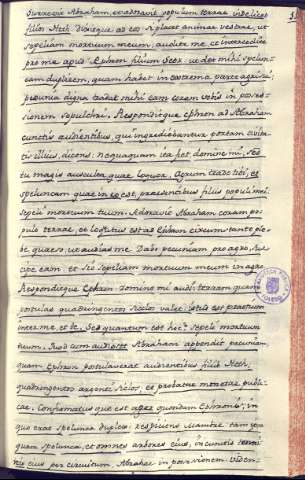 Surrexit Abraham, et adoravit populum terrae videlicet
filios Heth. Dixitque ad eos si placet animae vestrae, ut
sepeliam mortuum meum, audite me et intercedite
pro me apud Ephron filium Seor ut det mihi spelun-
cam duplicem, quam habet in extrema parte agri sui,
pecunia digna tradat mihi eam coram vobis in posses-
sionem sepulchri. Responditque Ephron ad Abraham
cunctis audientibus, qui ingrediebantur portam civita-
tis illius, dicens: nequaquam ita fiet domine mi, sed
tu magis ausculta quae loquor. Agrum trado tibi, et
speluncam quae in eo est, praesentibus filiis populi mei.
Sepeli mortuum tuum. Adoravit Abraham coram po-
pulo terrae, et locutus est ad Ephron circumstante ple-
be: quaeso, ut audias me. Dabo pecuniam pro agro. Sus-
cipe eam et sic sepeliam mortuum meum in agro.
Responditque Ephron: Domine mi audi terram quam
postulas quadringentis siclos valet: istud est praetium
inter me et te. Sed quantum est hoc? Sepeli mortuum
tuum. Quod cum audisset Abraham appendit pecuniam,
quam Ephron postulaverat audientibus filiis Heth,
quadringentos argenti siclos, et probatae monetae publi-
cae. Confirmatusque est ager quondam Ephronis, in
quo erat spelunca duplex, respiciens Mambre tam ipse
quam spelunca, et omnes arbores eius, in cunctis termi-
nis eius per circuitum, Abrahae in possessionem viden-